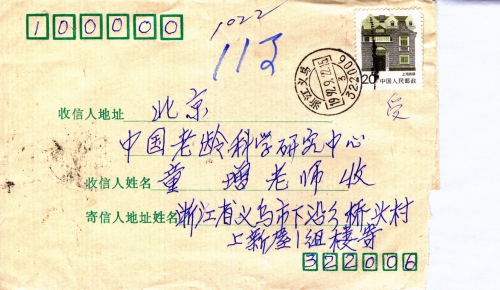 100000
1022
上海民居
20 中国人民邮政
浙江义乌
322006
收信人地址 北京
中国老龄科学研究中心
收信人姓名 童增老师收
寄信人地址姓名 浙江省义乌市下沿乡桥头村
上新屋1组楼寄
322006